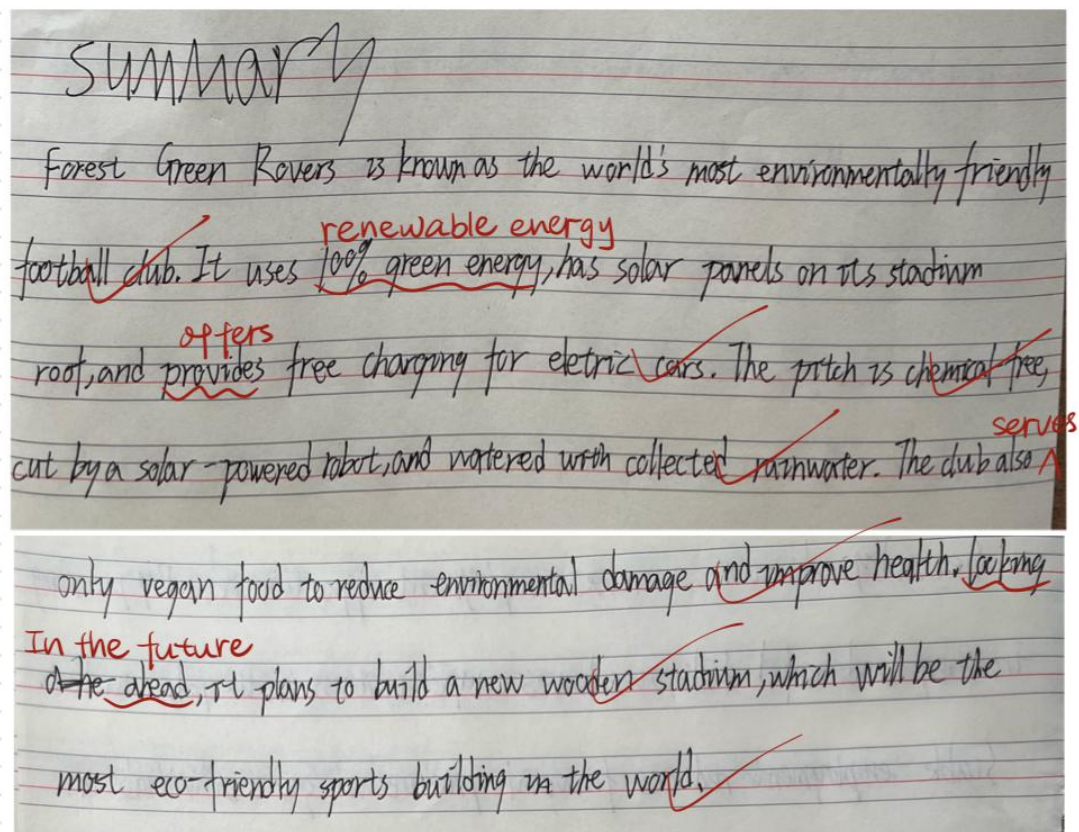 summary
Forest Green Rovers is known as the world's most environmentally friendly
renewable energy
football club. It uses 100% green energy, has solar panels on its stadium
offers
roof, and provides free charging for eletric cars. The pitch is chemical free,
serves
cut by a solar-powered robot, and watered with collected rainwater. The club also
only vegan food to reduce environmental damage and improve health. looking
In the future
ahead, it plans to build a new wooden stadium, which will be the
most eco-friendly sports building in the world.